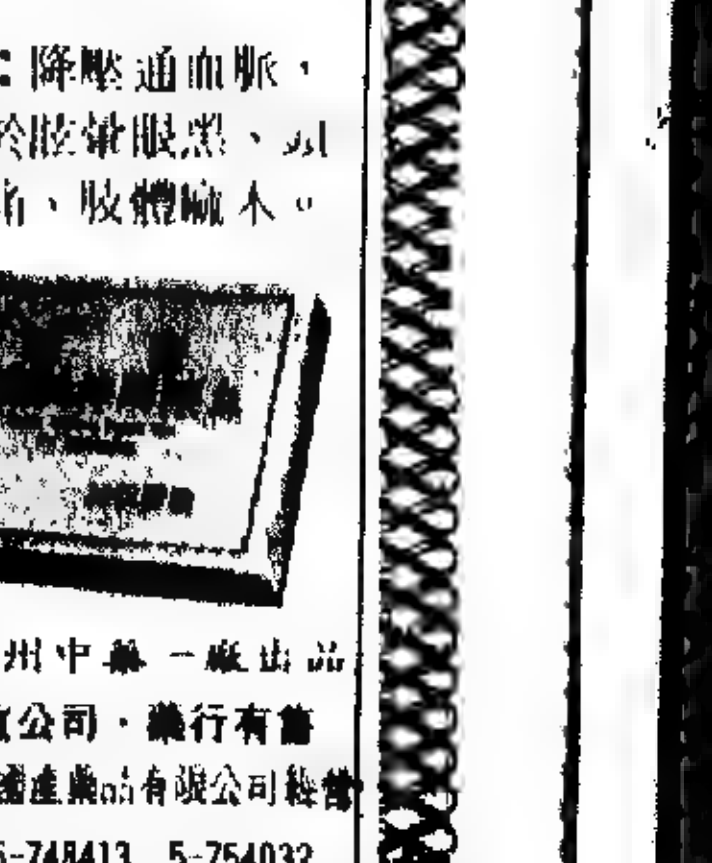 ：降壓通血脈，
於眩暈眼黑、頭
痛、肢體麻木。
州中藥一廠出品
公司·藥行有售
國產藥品有限公司經營
5-748413 5-754032